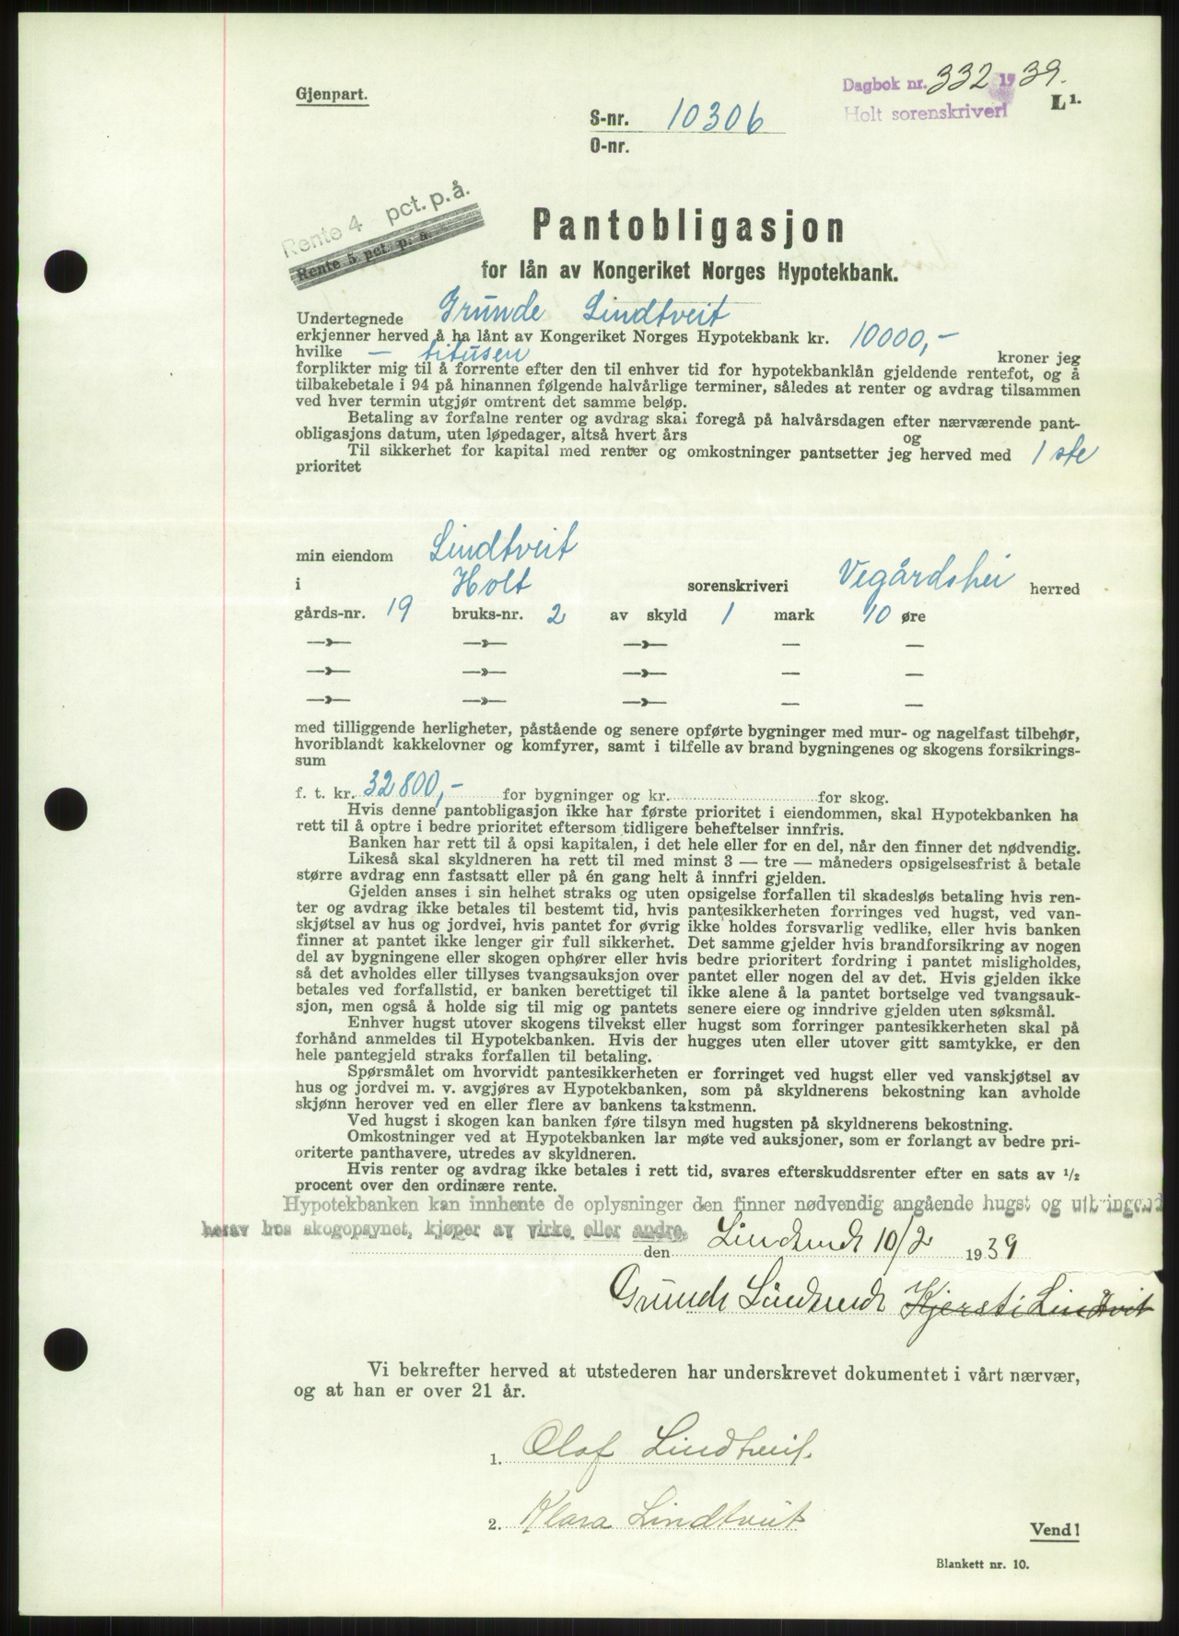 Gjenpart.
Dagbok nr. 332 1939.
Holt sorenskriveri
L 1.
S-nr. 10306
O-nr.
Rente 4 pct. p. å.
Rente 5 pct. p. å.
Pantobligasjon
for lån av Kongeriket Norges Hypotekbank.
Undertegnede Grunde Lindtveit
erkjenner herved å ha lånt av Kongeriket Norges Hypotekbank kr. 10000,-
hvilke - titusen kroner jeg
forplikter mig til å forrente efter den til enhver tid for hypotekbanklån gjeldende rentefot, og å
tilbakebetale i 94 på hinannen følgende halvårlige terminer, således at renter og avdrag tilsammen
ved hver termin utgjør omtrent det samme beløp.
Betaling av forfalne renter og avdrag skal foregå på halvårsdagen efter nærværende pant-
obligasjons datum, uten løpedager, altså hvert års og
Til sikkerhet for kapital med renter og omkostninger pantsetter jeg herved med 1 ste
prioritet
min eiendom Lindtveit
i Holt sorenskriveri Vegårdshei herred
gårds-nr. 19 bruks-nr. 2 av skyld 1 mark 10 øre
—»— —»— —»— — —
—»— —»— —»— — —
—»— —»— —»— — —
med tilliggende herligheter, påstående og senere opførte bygninger med mur- og nagelfast tilbehør,
hvoriblandt kakkelovner og komfyrer, samt i tilfelle av brand bygningenes og skogens forsikrings-
sum
f. t. kr. 32800,- for bygninger og kr. for skog.
Hvis denne pantobligasjon ikke har første prioritet i eiendommen, skal Hypotekbanken ha
rett til å optre i bedre prioritet eftersom tidligere beheftelser innfris.
Banken har rett til å opsi kapitalen, i det hele eller for en del, når den finner det nødvendig.
Likeså skal skyldneren ha rett til med minst 3 — tre — måneders opsigelsesfrist å betale
større avdrag enn fastsatt eller på én gang helt å innfri gjelden.
Gjelden anses i sin helhet straks og uten opsigelse forfallen til skadesløs betaling hvis ren-
ter og avdrag ikke betales til bestemt tid, hvis pantesikkerheten forringes ved hugst, ved van-
skjøtsel av hus og jordvei, hvis pantet for øvrig ikke holdes forsvarlig vedlike, eller hvis banken
finner at pantet ikke lenger gir full sikkerhet. Det samme gjelder hvis brandforsikring av nogen
del av bygningene eller skogen ophører eller hvis bedre prioritert fordring i pantet misligholdes,
så det avholdes eller tillyses tvangsauksjon over pantet eller nogen del av det. Hvis gjelden ikke
betales ved forfallstid, er banken berettiget til ikke alene å la pantet bortselge ved tvangsauk-
sjon, men også å holde sig til mig og pantets senere eiere og inndrive gjelden uten søksmål.
Enhver hugst utover skogens tilvekst eller hugst som forringer pantesikkerheten skal på
forhånd anmeldes til Hypotekbanken. Hvis der hugges uten eller utover gitt samtykke, er den
hele pantegjeld straks forfallen til betaling.
Spørsmålet om hvorvidt pantesikkerheten er forringet ved hugst eller ved vanskjøtsel av
hus og jordvei m. v. avgjøres av Hypotekbanken, som på skyldnerens bekostning kan avholde
skjønn herover ved en eller flere av bankens takstmenn.
Ved hugst i skogen kan banken føre tilsyn med hugsten på skyldnerens bekostning.
Omkostninger ved at Hypotekbanken lar møte ved auksjoner, som er forlangt av bedre pri-
oriterte panthavere, utredes av skyldneren.
Hvis renter og avdrag ikke betales i rett tid, svares efterskuddsrenter efter en sats av 1/2
procent over den ordinære rente.
Hypotekbanken kan innhente de oplysninger den finner nødvendig angående hugst og utbringende
herav hos skogopsynet, kjøper av virke eller andre.
den 10/2 1939
Grunde Kjersti Lindtveit
Vi bekrefter herved at utstederen har underskrevet dokumentet i vårt nærvær,
og at han er over 21 år.
1. Olaf Lindtveit.
2. Klara Lindtveit
Vend!
Blankett nr. 10.